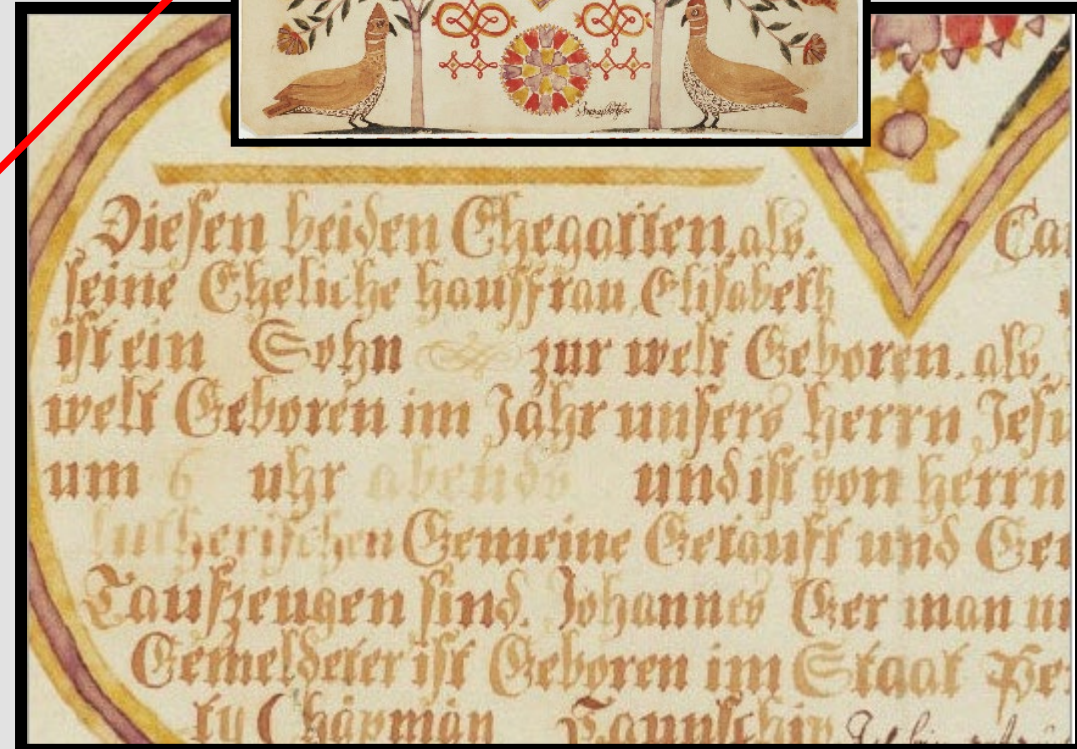 Diesen beiden Ehegatten, als. Ca
seine Eheliche hauss frau, Elisabeth
ist ein Sohn zur welt Geboren. als
welt Geboren im Jahr unsers herrn Jesu
um 6 uhr abends und ist von herrn
lutherischen Gemeine Getauft und Gen
Taufzeugen sind. Johannes Ger man un
Gemeldeter ist Geboren im Staat Pe
ty Chapman Taunschip